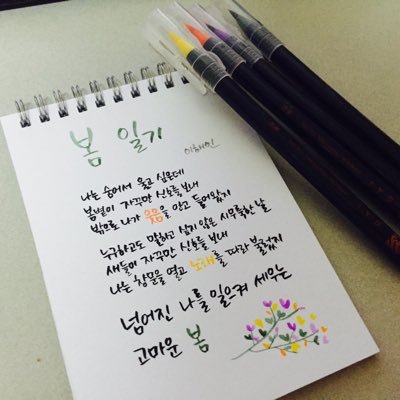 봄 일기
이해인
나는 숨어서 울고 싶은데
봄볕이 자꾸만 신호를 보내
밖으로 나가 웃음을 안고 들어왔지
누구하고도 말하고 싶지 않은 시무룩한 날
새들이 자꾸만 신호를 보내
나는 창문을 열고 노래를 따라 불렀지
넘어진 나를 일으켜 세우는
고마운 봄